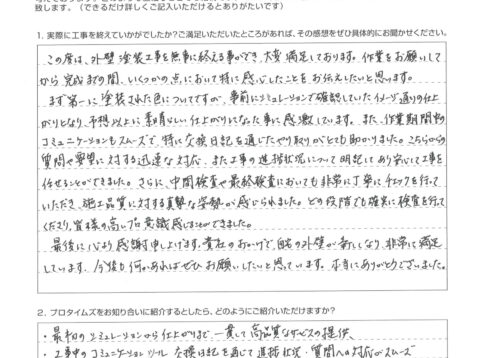 致します。（できるだけ詳しくご記入いただけるとありがたいです）
1. 実際に工事を終えていかがでしたか？ご満足いただいたところがあれば、その感想をぜひ具体的にお聞かせください。
この度は、外壁塗装工事を無事に終える事ができ、大変満足しております。作業をお願いして
から完成までの間、いくつかの点において特に感心したことをお伝えしたいと思います。
まず第一に塗装された色についてですが、事前にシミュレーションで確認していたイメージ通りの仕上
がりとなり、予想以上に素晴らしい仕上がりになった事に感激しています。また、作業期間中の
コミュニケーションもスムーズで、特に交換日記を通じたやり取りがとても助かりました。こちらからの
質問や要望に対する迅速な対応、また工事の進捗状況について明記してあり安心して工事を
任せることができました。さらに、中間検査や最終検査においても非常に丁寧にチェックを行って
いただき、施工品質に対する真摯な姿勢が感じられました。どの段階でも確実に検査を行って
くださり、皆様の高いプロ意識感じることができました。
最後に心より感謝申し上げます。貴社のおかげで、自宅の外壁が新しくなり、非常に満足
しています。今後も何かあればぜひお願いしたいと思っています。本当にありがとうございました。
2. プロタイムズをお知り合いに紹介するとしたら、どのようにご紹介いただけますか？
・最初のシミュレーションから仕上がりまで、一貫して高品質なサービスの提供、
・工事中のコミュニケーションツール 交換日記を通じて進捗状況・質問への対応がスムーズ